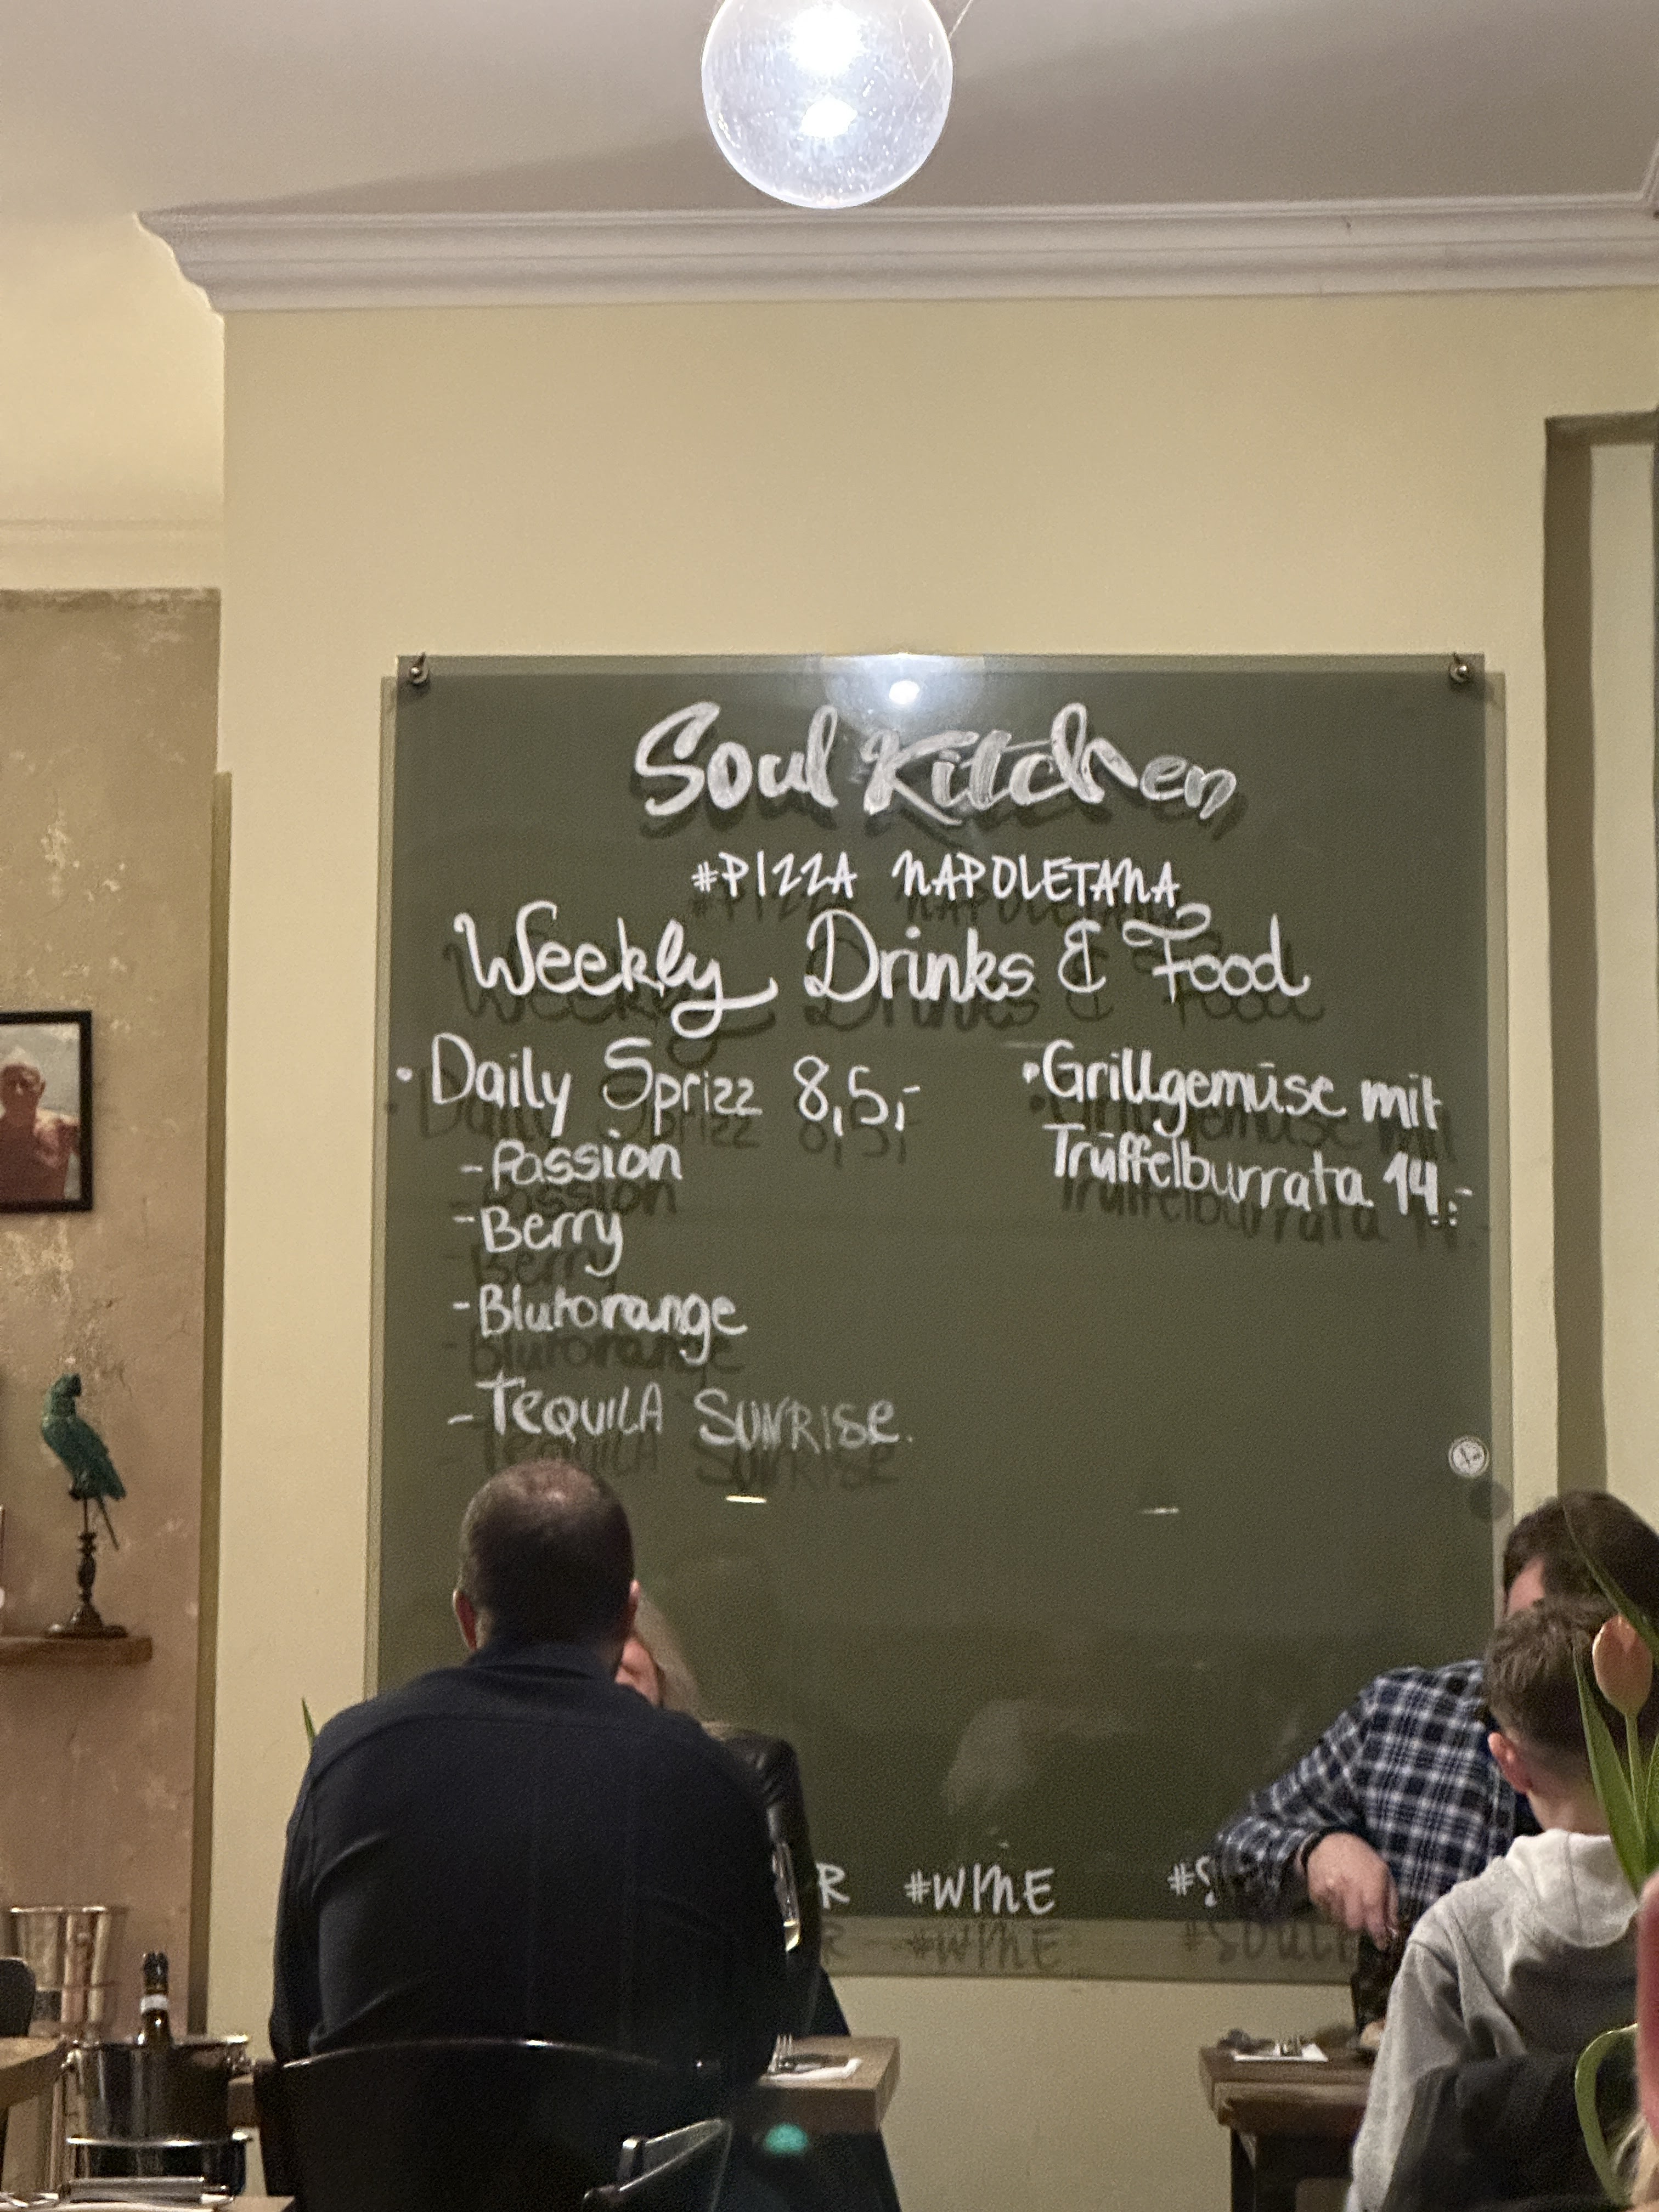 Soul Kitchen
#PIZZA NAPOLETANA
Weekly Drinks & Food
• Daily Sprizz 8,5,-
- Passion
- Berry
- Blutorange
- TEQUILA SUNRISE.
• Grillgemüse mit
Trüffelburrata 14.-
#WINE